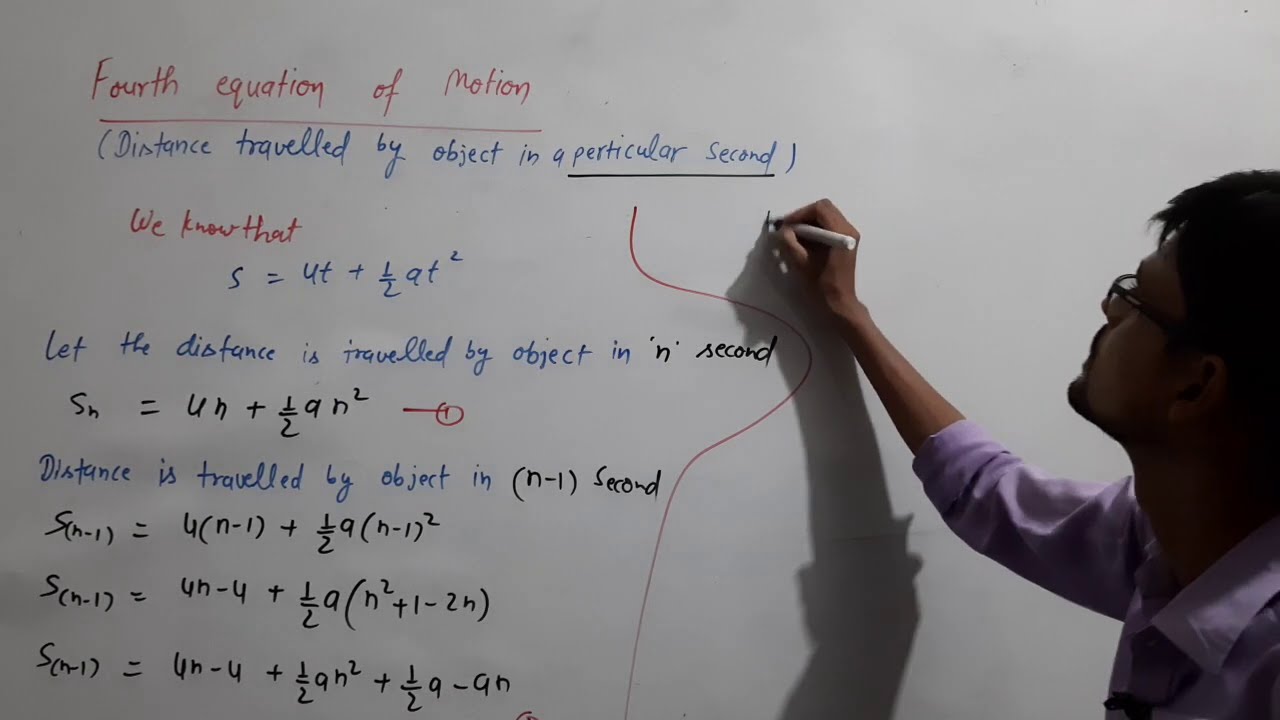 Fourth equation of Motion
(Distance travelled by object in a perticular second)
We know that
s = ut + 1/2 at²
Let the distance is travelled by object in 'n' second
Sₙ = un + 1/2 an² —①
Distance is travelled by object in (n-1) second
S(n-1) = u(n-1) + 1/2 a(n-1)²
S(n-1) = un-u + 1/2 a(n²+1-2n)
S(n-1) = un-u + 1/2 an² + 1/2 a - an